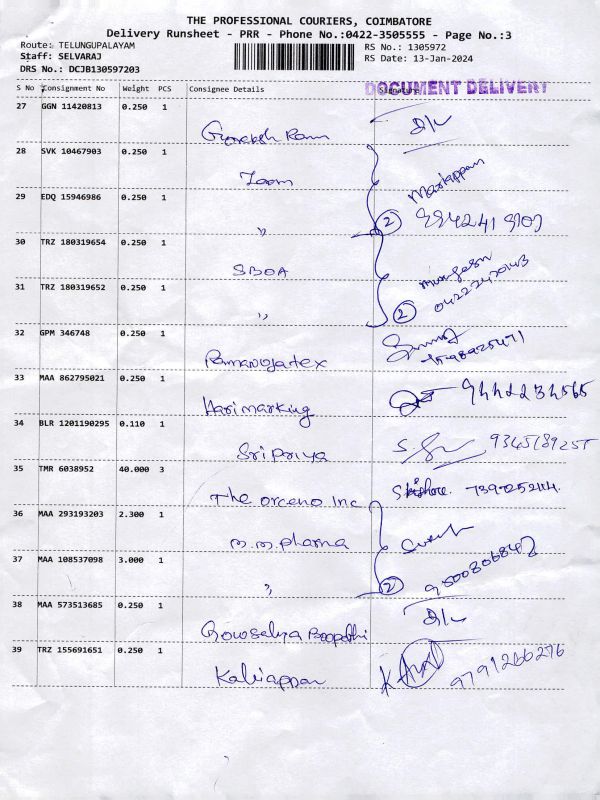 THE PROFESSIONAL COURIERS, COIMBATORE
Delivery Runsheet - PRR - Phone No.:0422-3505555 - Page No.:3
Route: TELUNGUPALAYAM
RS No.: 1305972
Staff: SELVARAJ
RS Date: 13-Jan-2024
DRS No.: DCJB130597203
DOCUMENT DELIVERY
S No Consignment No Weight PCS Consignee Details Signature
27 GGN 11420813 0.250 1
28 SVK 10467903 0.250 1
Zoom
29 EDQ 15946986 0.250 1
" 2
30 TRZ 180319654 0.250 1
SBOA
31 TRZ 180319652 0.250 1
" 2
32 GPM 346748 0.250 1
33 MAA 862795021 0.250 1
Hari marking
34 BLR 1201190295 0.110 1
Sri Priya
35 TMR 6038952 40.000 3
The orceno Inc
36 MAA 293193203 2.300 1
m.m. pharma
37 MAA 108537098 3.000 1
" 2 9500806842
38 MAA 573513685 0.250 1
39 TRZ 155691651 0.250 1
Kaliappan 9791266276